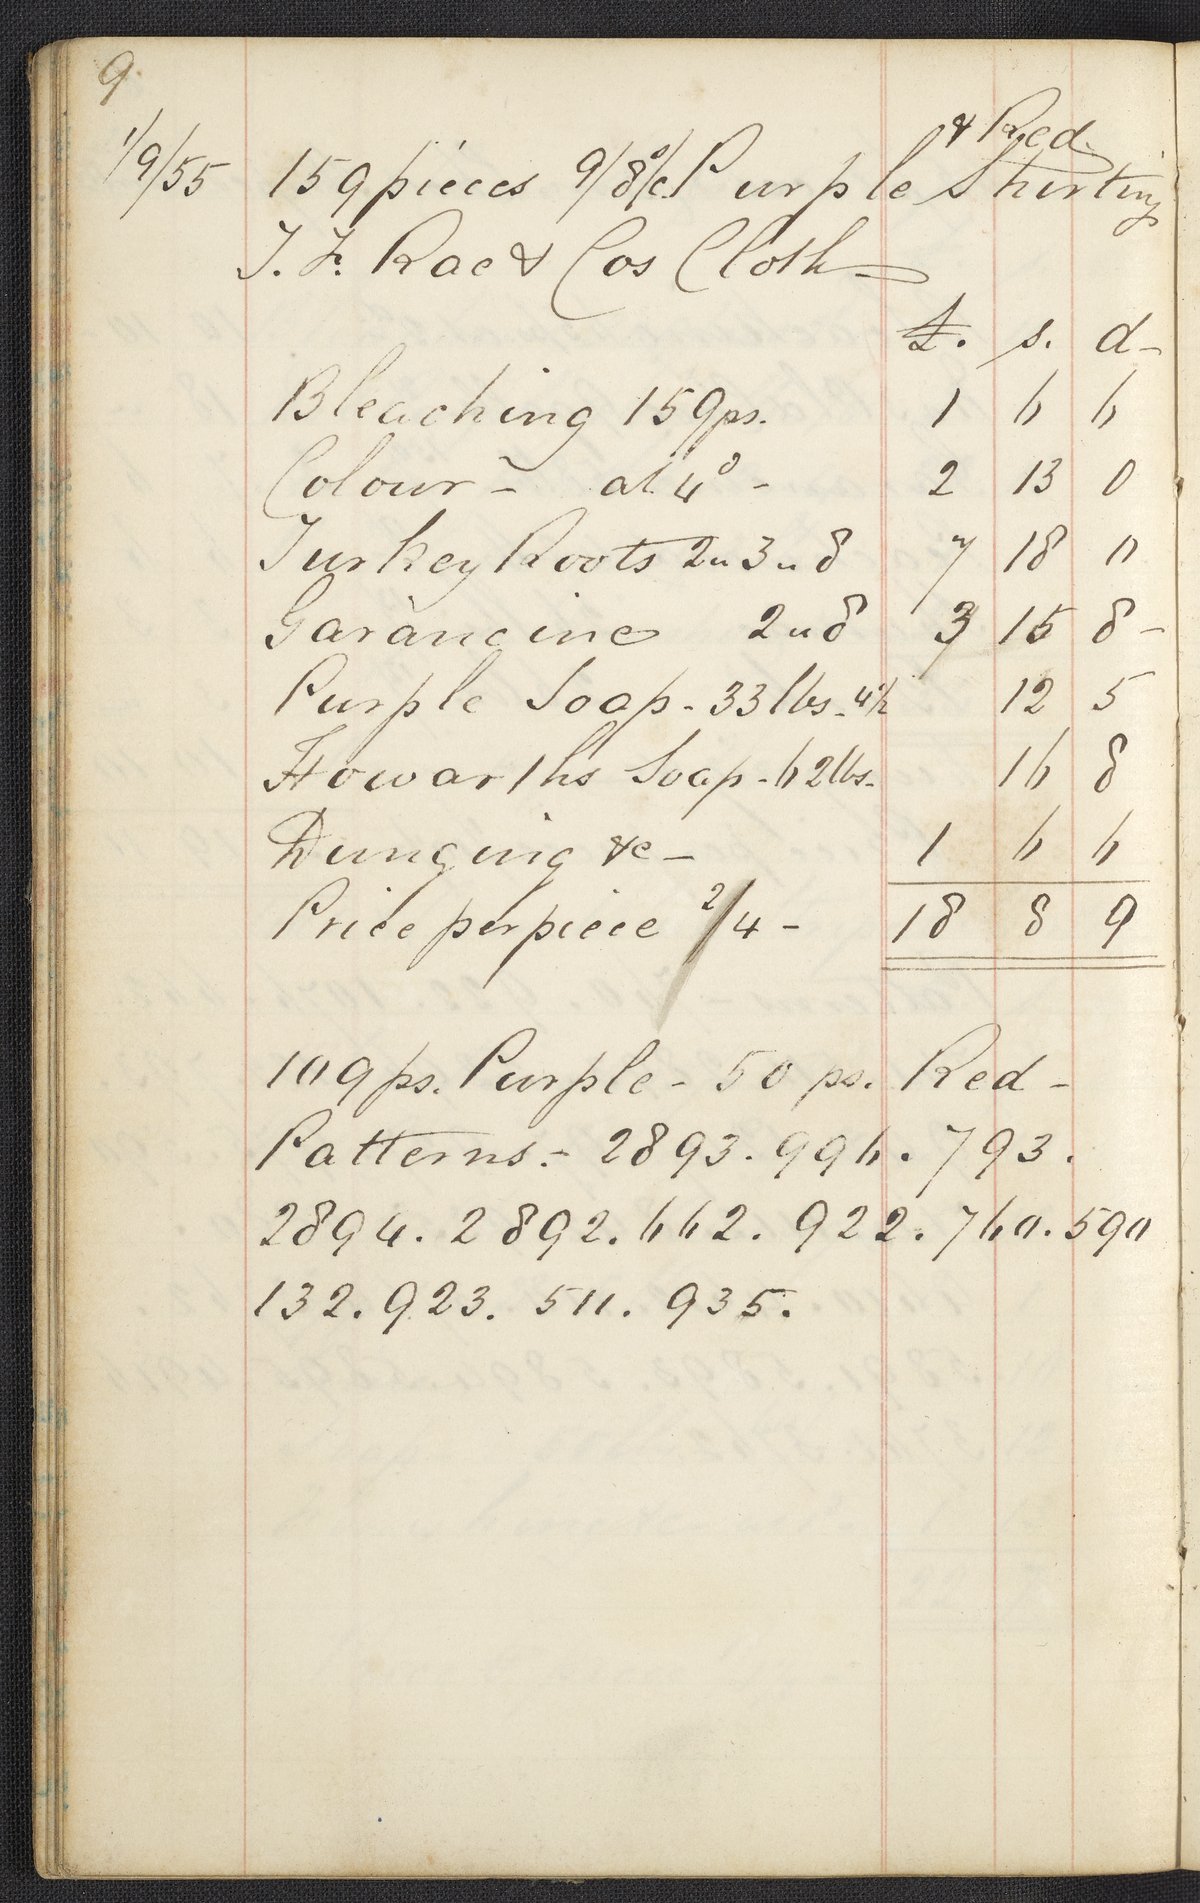 9.
1/9/55 159 pieces 9/8 Purple & Red Shirting
J. F. Rae & Cos Cloth
£. s. d-
Bleaching 159 ps. 1 6 6
Colour - at 4d - 2 13 0
Turkey Roots 2 " 3 " 8 7 18 0
Garancine 2 " 8 3 15 8 -
Purple Soap - 33 lbs - 4½ 12 5
Howarths Soap - 62 lbs - 16 8
Dunging &c - 1 6 6
Price per piece 2/4 - 18 8 9
109 ps. Purple - 50 ps. Red -
Patterns - 2893. 996. 793.
2894. 2892. 662. 922. 760. 590
132. 923. 511. 935.